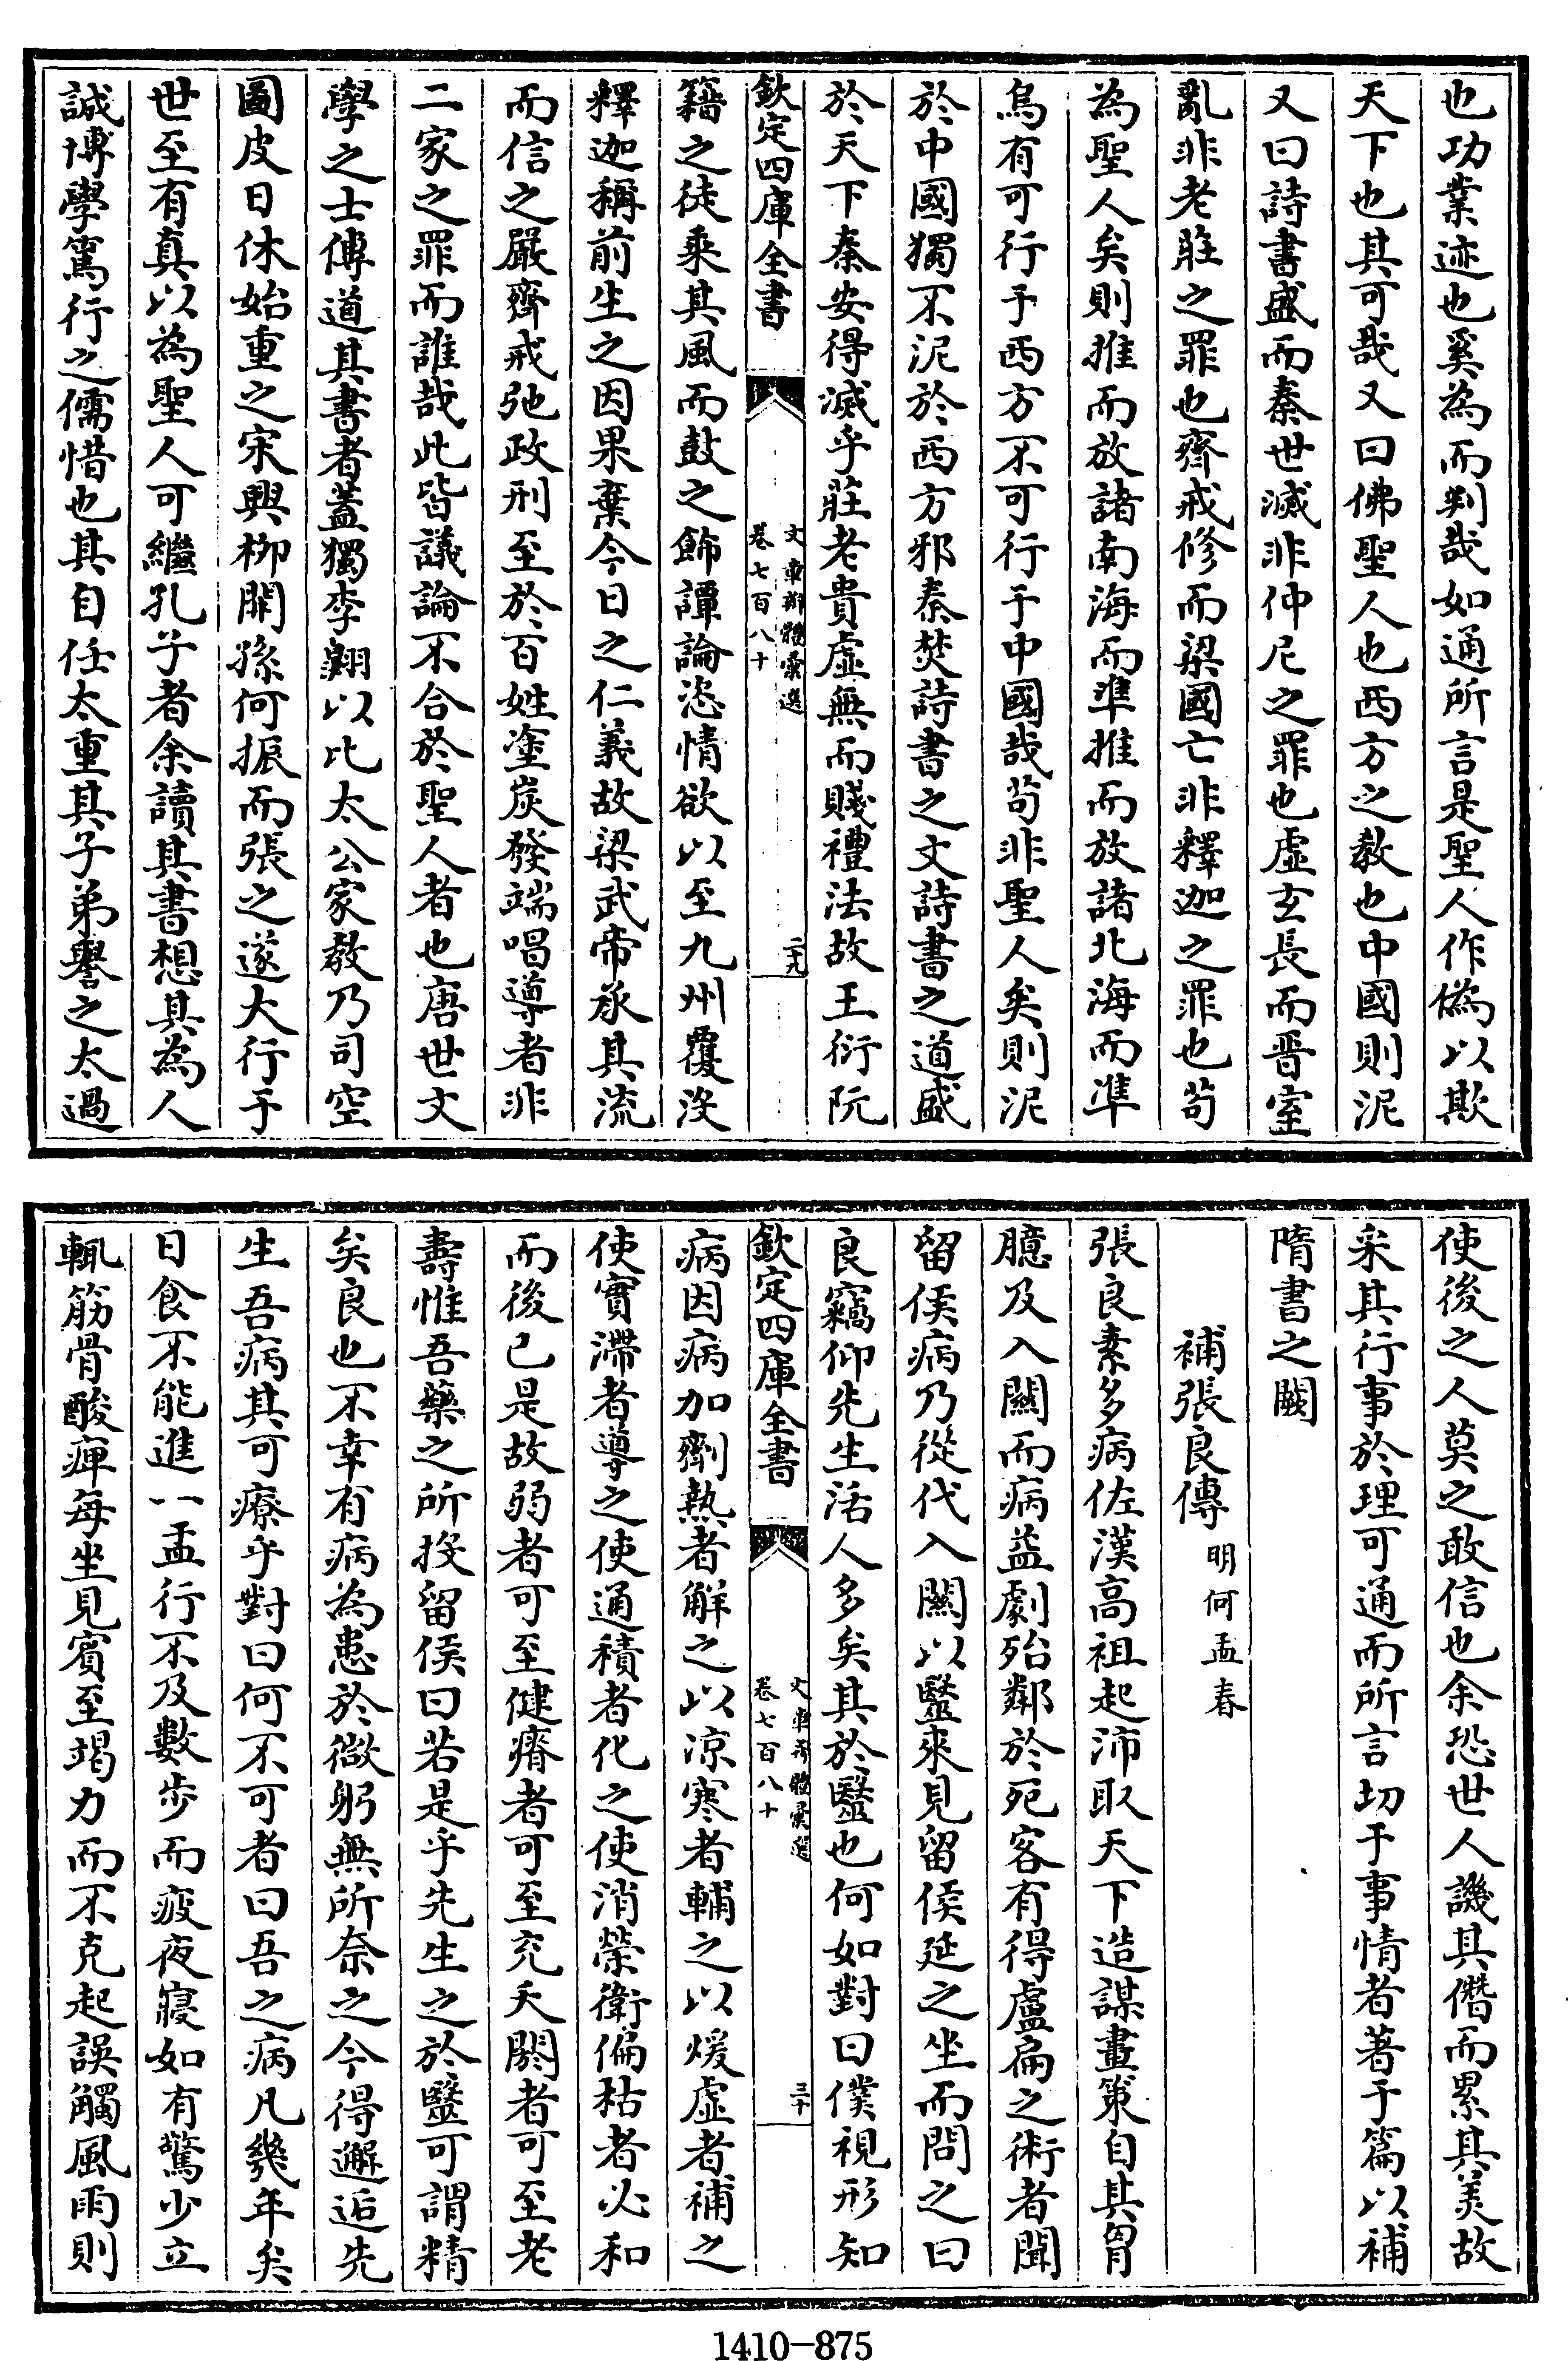 也功業迹也奚為而判哉如通所言是聖人作偽以欺
天下也其可哉又曰佛聖人也西方之教也中國則泥
又曰詩書盛而秦世滅非仲尼之罪也虛玄長而晉室
亂非老莊之罪也齋戒修而梁國亡非釋迦之罪也茍
為聖人矣則推而放諸南海而準推而放諸北海而準
烏有可行于西方不可行于中國哉茍非聖人矣則泥
於中國獨不泥於西方邪秦焚詩書之文詩書之道盛
於天下秦安得滅乎莊老貴虛無而賤禮法故王衍阮
欽定四庫全書
文章辨體彙選
卷七百八十
二十九
籍之徒乘其風而鼓之飾譚論恣情欲以至九州覆沒
釋迦稱前生之因果棄今日之仁義故梁武帝承其流
而信之嚴齊戒弛政刑至於百姓塗炭發端唱導者非
二家之罪而誰哉此皆議論不合於聖人者也唐世文
學之士傳道其書者蓋獨李翱以比太公家教乃司空
圖皮日休始重之宋興柳開孫何振而張之遂大行于
世至有真以為聖人可繼孔子者余讀其書想其為人
誠博學篤行之儒惜也其自任太重其子弟譽之太過
使後之人莫之敢信也余恐世人譏其僭而累其美故
采其行事於理可通而所言切于事情者著于篇以補
隋書之闕
補張良傳 明何孟春
張良素多病佐漢高祖起沛取天下造謀畫策自其胷
臆及入關而病益劇殆鄰於死客有得盧扁之術者聞
留侯病乃從代入關以毉來見留侯延之坐而問之曰
良竊仰先生活人多矣其於毉也何如對曰僕視形知
欽定四庫全書
文章辨體彙選
卷七百八十
三十
病因病加劑熱者解之以涼寒者輔之以煖虛者補之
使實滯者導之使通積者化之使消榮衛偏枯者必和
而後已是故弱者可至健瘠者可至充夭閼者可至老
壽惟吾藥之所投留侯曰若是乎先生之於毉可謂精
矣良也不幸有病為患於微躬無所奈之今得邂逅先
生吾病其可療乎對曰何不可者曰吾之病凡幾年矣
日食不能進一盂行不及數步而疲夜寢如有驚少立
輒筋骨酸痺每坐見賓至竭力而不克起誤觸風雨則
1410-875